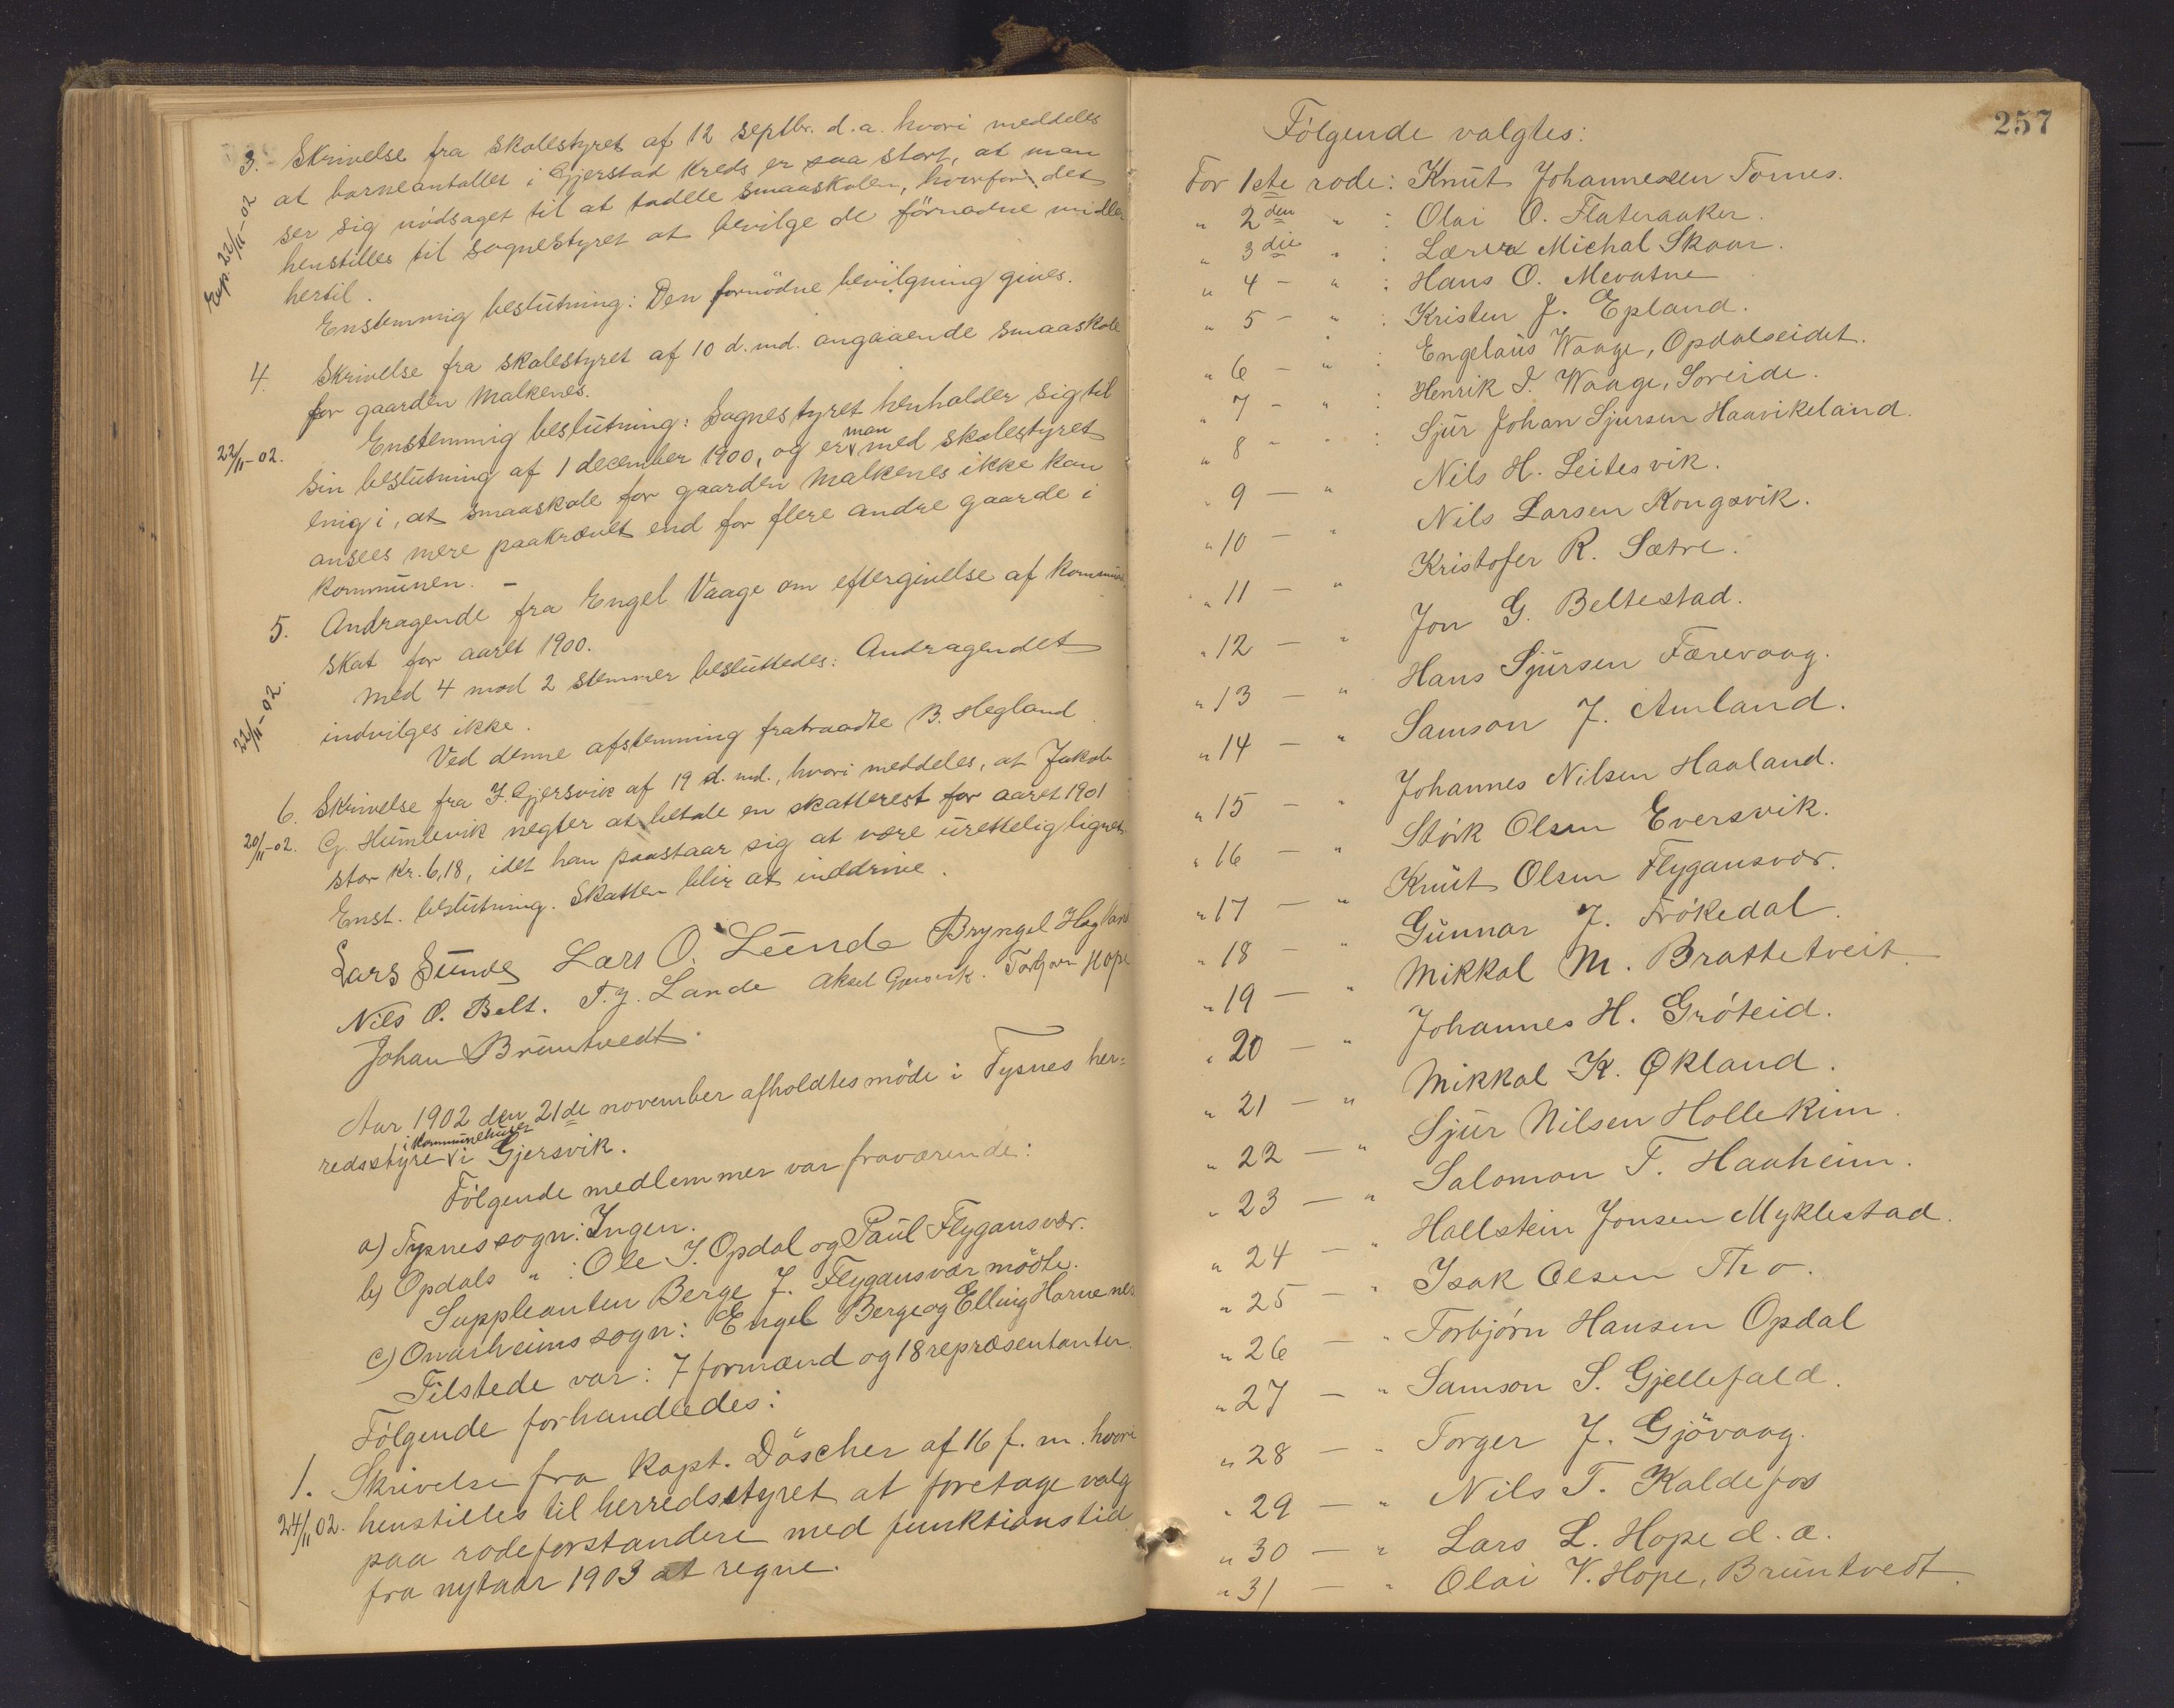 3. Skrivelse fra skolestyret af 12 septbr. d.a. hvori meddeles
at barneantallet i Gjerstad kreds er saa stort, at man
ser sig nödsaget til at todele smaaskolen, hvorfor det
henstilles til sognestyret at bevilge de förnødne midler
hertil.
Exp. 22/11-02
Enstemmig beslutning: Den fornödne bevilgning gives.
4. Skrivelse fra skolestyret af 10 d. md. angaaende smaaskole
for gaarden Malkenes.
22/11-02.
Enstemmig beslutning: Sognestyret henholder sig til
sin beslutning af 1 december 1900, og er man med skolestyret
enig i, at smaaskole for gaarden Malkenes ikke kan
ansees mere paakrævet end for flere andre gaarde i
kommunen. –
5. Andragende fra Engel Vaage om eftergivelse af kommune
skat for aaret 1900.
22/11-02.
Med 4 mod 2 stemmer besluttedes: Andragendet
indvilges ikke.
Ved denne afstemning fratraadte B. Hegland.
6. Skrivelse fra J. Gjersvik af 19 d. md., hvori meddeles, at Jakob
20/11-02. G. Humlevik negter at betale en skatterest for aaret 1901
stor kr. 6,18, idet han paastaar sig at være urettelig lignet.
Enst. beslutning. Skatten blir at inddrive.
Lars Sunde Lars O. Leende Bryngel Hegland
Nils O. Belt. T. J. Lande Aksel Gjersvik. Torbjørn Hope
Johan Bruntvedt.
Aar 1902 den 21de november afholdtes möde i Tysnes her=
redsstyre i kommunehuset i Gjersvik.
Fölgende medlemmer var fraværende:
a) Tysnes sogn: Ingen.
b) Opdals " : Ole J. Opdal og Paul Flygansvær.
Suppleanten Berge J. Flygansvær mödte.
c) Onarheims sogn: Engel Berge og Elling Harnenes
Tilstede var: 7 formænd og 18 repræsentanter.
Fölgende forhandledes:
1. Skrivelse fra kapt. Döscher af 16 f. m. hvori
24/11 02. henstilles til herredsstyret at foretage valg
paa rodeforstandere med funktionstid
fra nytaar 1903 at regne.
257
Fölgende valgtes:
For 1ste rode: Knut Johannessen Tornes.
" 2den " : Olai O. Flateraaker.
" 3die " : Lærer Michal Skaar.
" 4 – " : Hans O. Mevatne
" 5 – " : Kristen J. Epland.
" 6 – " : Engelaus Waage, Opdalseidet.
" 7 – " : Henrik I. Waage, Soreide.
" 8 – " : Sjur Johan Sjursen Haavikeland.
" 9 – " Nils H. Leitesvik.
" 10 – " Nils Larsen Kongsvik.
" 11 – " Kristofer R. Sætre.
" 12 – " Jon G. Beltestad.
" 13 – " Hans Sjursen Færevaag.
" 14 – " Samson J. Amland.
" 15 – " Johannes Nilsen Haaland.
" 16 – " Störk Olsen Eversvik.
" 17 – " Knut Olsen Flygansvær.
" 18 – " Gunnar J. Frökedal.
" 19 – " Mikkal M. Brattetveit.
" 20 – " Johannes H. Gröteid.
" 21 – " Mikkal K. Økland.
" 22 – " Sjur Nilsen Hollekim.
" 23 – " Salomon T. Haaheim.
" 24 – " Hallstein Jonsen Myklestad.
" 25 – " Isak Olsen Tho.
" 26 – " Torbjörn Hansen Opdal
" 27 – " Samson S. Gjellefald.
" 28 – " Torger J. Gjövaag.
" 29 – " Nils T. Kaldefos
" 30 – " Lars L. Hope d. æ.
" 31 – " Olai V. Hope, Bruntvedt.